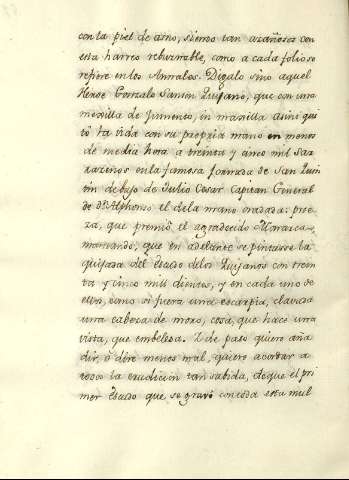 con la piel de asno, siendo tan azañosos con
esta harreo rebuznable, como a cada folio se
refiere en los Annales. Digalo sino aquel
Heroe Gonzalo Sanson Quijano, que con una
mexilla de Jumento, in maxilla asini qui
tò la vida con su propria mano en menos
de media hora a treinta y cinco mil Sar
razenos en la famosa jornada de San Quin
tin debajo de Julio Cesar Capitan General
de Dn. Alphonso el de la mano oradada: proe
za, que premiò el agradecido Monarca
mandando, que en adelante se pintasse la
quijada del Escudo de los Quijanos con trein
ta y cinco mil dientes, y en cada uno de
ellos, como si fuera una escarpia, clavada
una cabeza de moro, cosa, que hace una
vista, que embelesa. I de paso quiero aña
dir, ò dirè menos mal, quiero acortar a
toda la erudicion tan sabida, de que el pri
mer Escudo que se gravò con toda esta mul